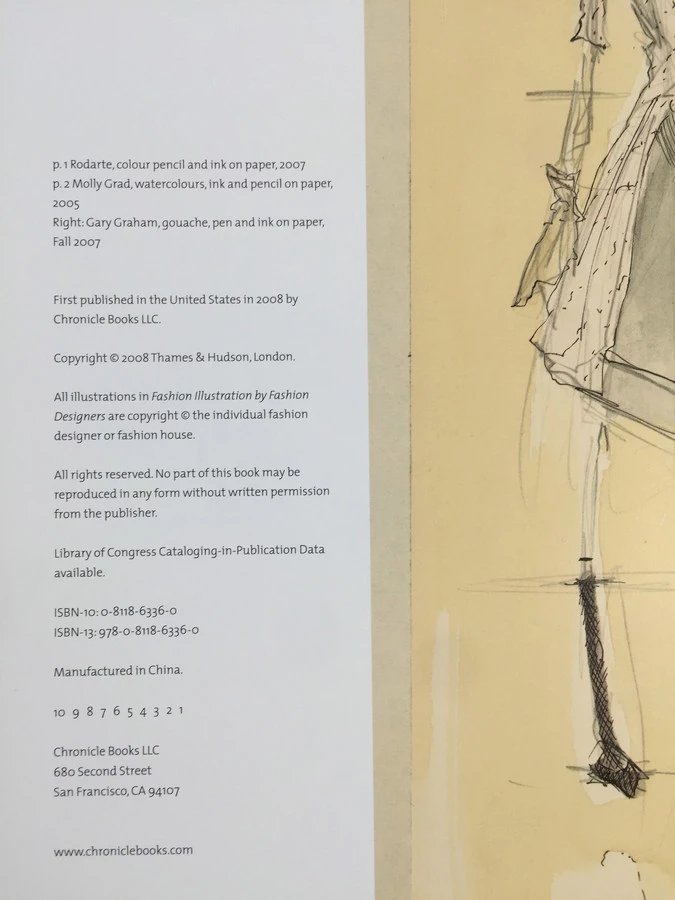 p. 1 Rodarte, colour pencil and ink on paper, 2007
p. 2 Molly Grad, watercolours, ink and pencil on paper,
2005
Right: Gary Graham, gouache, pen and ink on paper,
Fall 2007
First published in the United States in 2008 by
Chronicle Books LLC.
Copyright © 2008 Thames & Hudson, London.
All illustrations in Fashion Illustration by Fashion
Designers are copyright © the individual fashion
designer or fashion house.
All rights reserved. No part of this book may be
reproduced in any form without written permission
from the publisher.
Library of Congress Cataloging-in-Publication Data
available.
ISBN-10: 0-8118-6336-0
ISBN-13: 978-0-8118-6336-0
Manufactured in China.
10 9 8 7 6 5 4 3 2 1
Chronicle Books LLC
680 Second Street
San Francisco, CA 94107
www.chroniclebooks.com